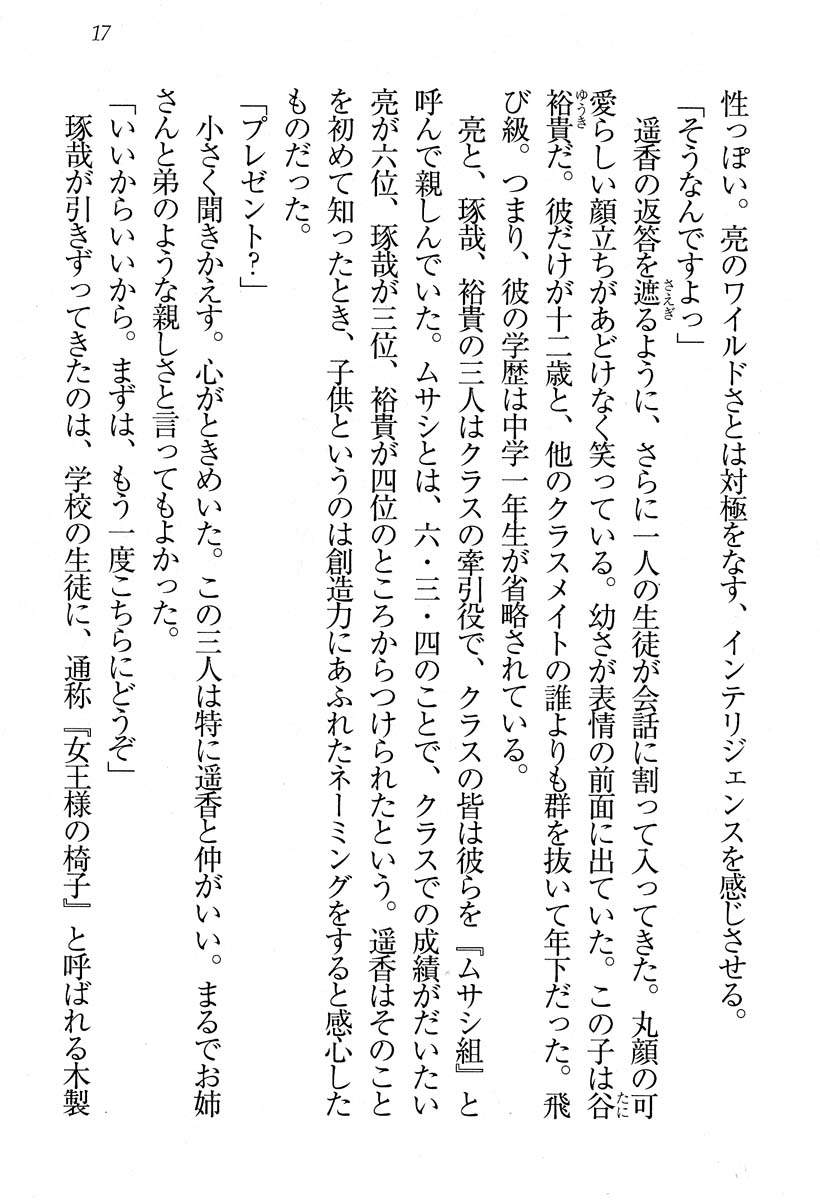 17
性っぽい。亮のワイルドさとは対極をなす、インテリジェンスを感じさせる。
「そうなんですよっ」
遥香の返答を遮るように、さらに一人の生徒が会話に割って入ってきた。丸顔の可
愛らしい顔立ちがあどけなく笑っている。幼さが表情の前面に出ていた。この子は谷
裕貴だ。彼だけが十二歳と、他のクラスメイトの誰よりも群を抜いて年下だった。飛
び級。つまり、彼の学歴は中学一年生が省略されている。
亮と、琢哉、裕貴の三人はクラスの牽引役で、クラスの皆は彼らを『ムサシ組』と
呼んで親しんでいた。ムサシとは、六・三・四のことで、クラスでの成績がだいたい
亮が六位、琢哉が三位、裕貴が四位のところからつけられたという。遥香はそのこと
を初めて知ったとき、子供というのは創造力にあふれたネーミングをすると感心した
ものだった。
「プレゼント？」
小さく聞きかえす。心がときめいた。この三人は特に遥香と仲がいい。まるでお姉
さんと弟のような親しさと言ってもよかった。
「いいからいいから。まずは、もう一度こちらにどうぞ」
琢哉が引きずってきたのは、学校の生徒に、通称『女王様の椅子』と呼ばれる木製